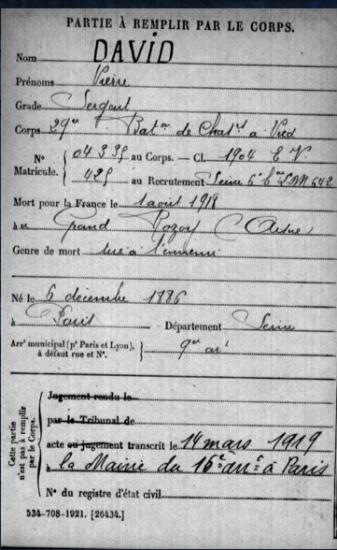 PARTIE À REMPLIR PAR LE CORPS.
Nom DAVID
Prénoms Pierre
Grade Sergent
Corps 29e Bat.on de Chas.rs à Pied
N° Matricule. { 04335 au Corps. — Cl. 1904 E V
425 au Recrutement Seine 6e b.au
Mort pour la France le 1 août 1918
à Grand Rozoy (Aisne)
Genre de mort tué à l'ennemi
Né le 6 décembre 1886
à Paris Département Seine
Arrt municipal (pr Paris et Lyon), à défaut rue et N°. } 9e arrt
Cette partie n'est pas à remplir par le Corps.
Jugement rendu le
par le Tribunal de
acte ou jugement transcrit le 14 mars 1919
à la Mairie du 16e arre à Paris
N° du registre d'état civil
534-708-1921. [26434.]